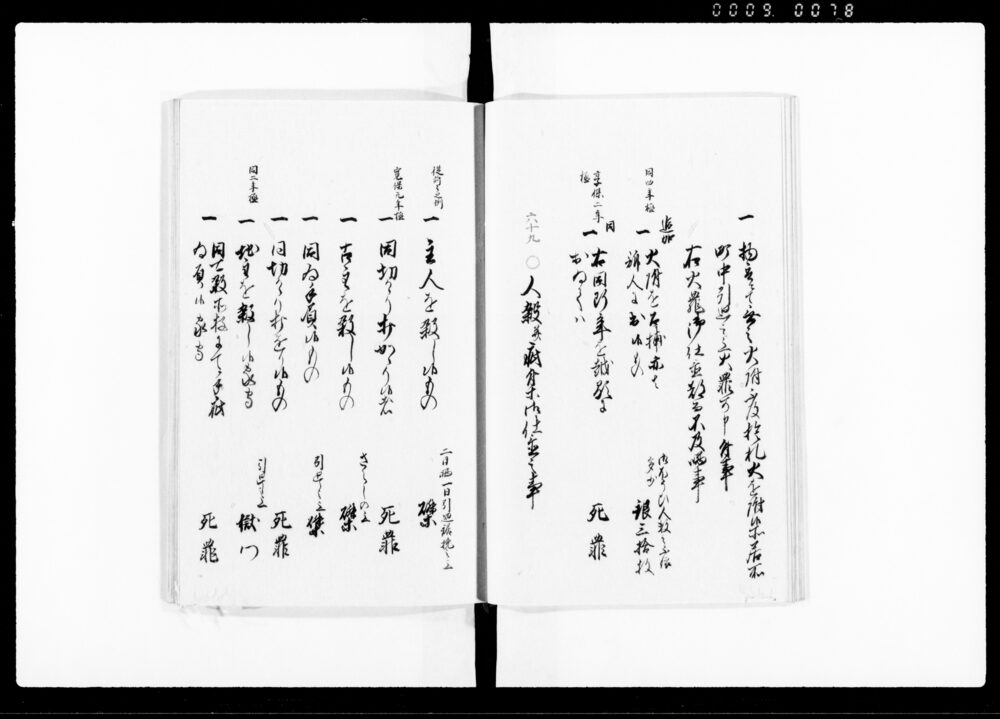 0009 0078
町中引廻之上火罪可申付事
右火罪御仕置 不及晒事
同四年極
追加
一 火附を召捕
訴人に出候もの
銀三拾枚
享保二年極
同
一 右同断
おゐてハ
死罪
六十九
○ 人殺并疵付等御仕置之事
従前々之例
一 主人を殺し候もの
二日晒一日引廻鋸挽之上
磔
寛保元年極
一 同切かゝり打かゝり候者
死罪
一 古主を殺し候もの
さらしの上
磔
一 同為手負候もの
引廻之上
磔
一 同切かゝり打かゝり候もの
死罪
同二年極
一 地主を殺し候家守
引廻之上
獄門
一 同可殺所存にて手疵
為負候家守
死罪